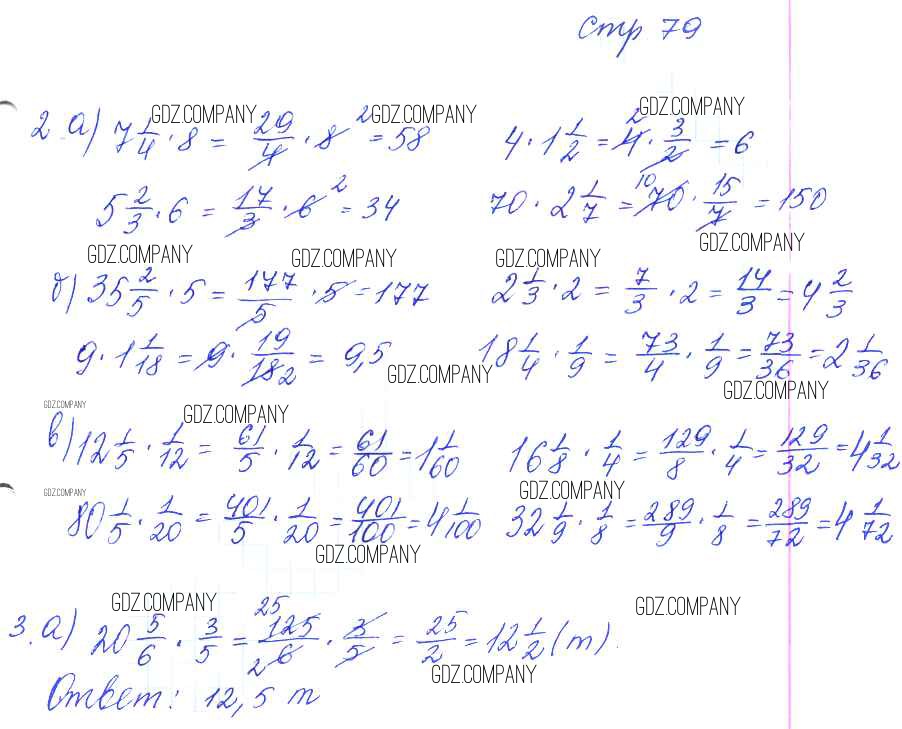 Стр 79
GDZ.COMPANY GDZ.COMPANY GDZ.COMPANY
2 а) 7 1/4 · 8 = 29/4 · 8 2 = 58 4 · 1 1/2 = 2 4 · 3/2 = 6
5 2/3 · 6 = 17/3 · 6 2 = 34 70 · 2 1/7 = 10 70 · 15/7 = 150
GDZ.COMPANY GDZ.COMPANY GDZ.COMPANY GDZ.COMPANY
б) 35 2/5 · 5 = 177/5 · 5 = 177 2 1/3 · 2 = 7/3 · 2 = 14/3 = 4 2/3
9 · 1 1/18 = 9 · 19/18 2 = 9,5 18 1/4 · 1/9 = 73/4 · 1/9 = 73/36 = 2 1/36
GDZ.COMPANY GDZ.COMPANY
GDZ.COMPANY GDZ.COMPANY
в) 12 1/5 · 1/12 = 61/5 · 1/12 = 61/60 = 1 1/60 16 1/8 · 1/4 = 129/8 · 1/4 = 129/32 = 4 1/32
GDZ.COMPANY GDZ.COMPANY
80 1/5 · 1/20 = 401/5 · 1/20 = 401/100 = 4 1/100 32 1/9 · 1/8 = 289/9 · 1/8 = 289/72 = 4 1/72
GDZ.COMPANY
GDZ.COMPANY GDZ.COMPANY
3. а) 20 5/6 · 3/5 = 25 125/2 6 · 3/5 = 25/2 = 12 1/2 (т).
GDZ.COMPANY
Ответ: 12,5 т